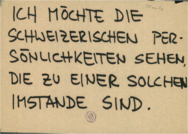 ICH MÖCHTE DIE
SCHWEIZERISCHEN PER-
SÖNLICHKEITEN SEHEN,
DIE ZU EINER SOLCHEN
IMSTANDE SIND.